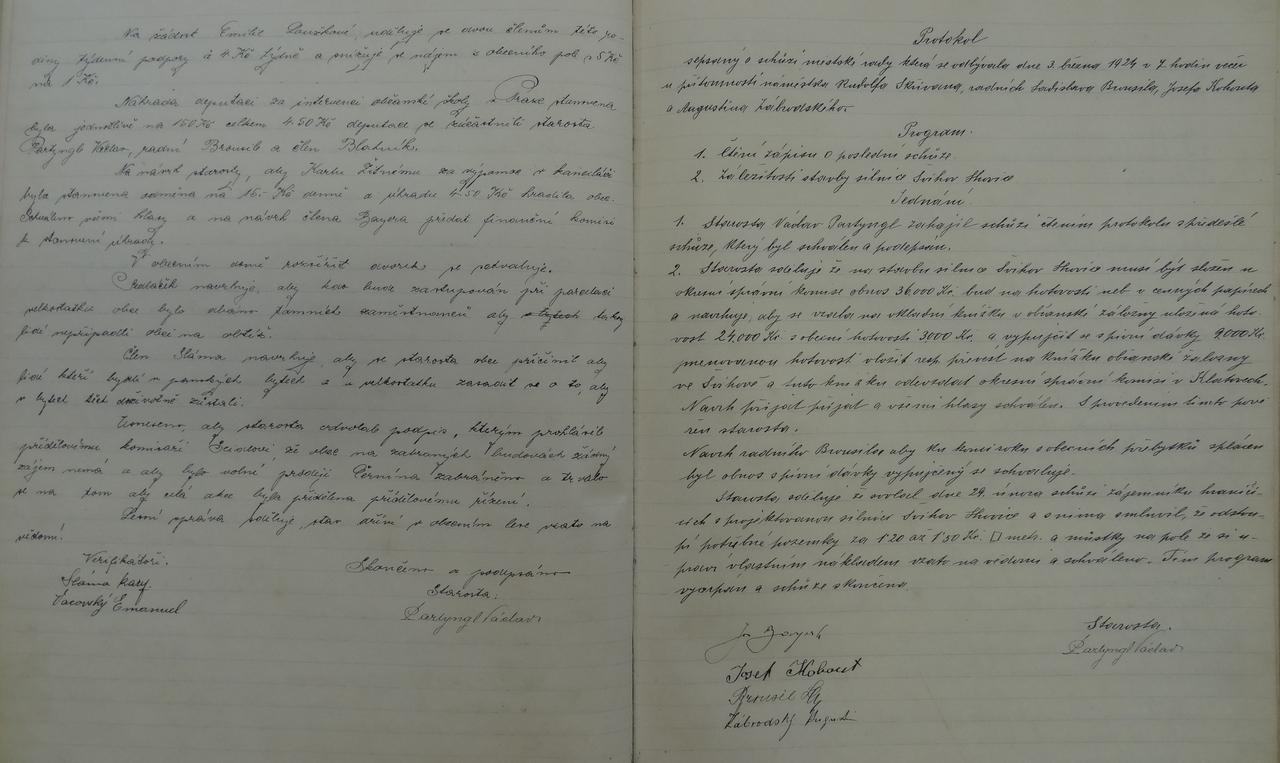 Na žádost Emilie Douškové, uděluje se dvou členům této ro-
diny týdenní podpory à 4 Kč týdně a snižuje se nájem z obecního pole z 5 Kč
na 1 Kč.
Náhrada deputaci za intervenci občanské školy v Praze stanovena
byla jednotlivě na 150 Kč celkem 450 Kč deputace se zúčastnili starosta
Partyngl Václav, radní Brousil a člen Blatník.
Na návrh starosty, aby Karlu Žitnému za výpomoc v kanceláři
byla stanovena odměna na 15.- Kč denně a úhradu 450 Kč hradila obec.
Schváleno všemi hlasy a na návrh člena Bayera přidat finanční komisi
k stanovení úhrady.
V obecním domě rozšířit dvorek se schvaluje.
navrhuje, aby kdo bude zastupován při parcelaci
velkostatku obce bylo dbáno tamních zaměstnanců aby z bytech takový
lidé nepřipadli obci na obtíž.
Člen Sláma navrhuje, aby se starosta obce přičinil aby
lidé kteří bydlí v panských bytech z u velkostatku zasadit se o to, aby
v bytech těch doživotně zůstali.
Usneseno, aby starosta odvolal podpis, kterým prohlásil
přídělovému komisaři že obec na zabraných budovách žádný
zájem nemá a aby bylo volné prodeji Černína zabráněno a trvalo
se na tom aby celá akce byla přidělena přídělovému řízení.
Lesní správa sděluje, stav dříví v obecním lese vzato na
vědomí.
Verifikátoři: Skončeno a podepsáno
Sláma Karel Starosta:
Vacovský Emanuel Partyngl Václav
Protokol
sepsaný o schůzi městské rady která se odbývala dne 3. března 1924 v 7. hodin večer
u přítomnosti náměstka Rudolfa Skřivana, radních Ladislava Brousila, Josefa Kohouta
a Augustina Zábrodského.
Program.
1. Čtení zápisu o poslední schůze.
2. Záležitosti stavby silnice Švihov Lhovice
Jednání.
1. Starosta Václav Partyngl zahájil schůzi čtením protokolu z předešlé
schůze, který byl schválen a podepsán.
2. Starosta sděluje že na stavbu silnice Švihov Lhovice musí být složen u
okresní správní komise obnos 36000 Kč. buď na hotovosti neb v cenných papírech
a navrhuje, aby se vzala na vkladní knížku v občanské záložny uložená hoto-
vost 24,000 Kč s obecní hotovosti 3000 Kč. a vypůjčit se z pivní dávky 9,000 Kč.
jmenovanou hotovost vložit resp. převest na knížku občanské záložny
ve Švihově a tuto knížku odevzdat okresní správní komisi v Klatovech.
Návrh přijat přijat a všemi hlasy schválen. S provedením tímto pově-
řen starosta.
Návrh radního Brousila, aby ku konci roku z obecních přebytků splacen
byl obnos z pivní dávky vypůjčený se schvaluje.
Starosta sděluje že svolal dne 29. února schůzi zájemníků hraničí-
cích s projektovanou silnicí Švihov Lhovice a s nima smluvil, že odstou-
pí potřebné pozemky za 1'20 až 1'50 Kč. □ metr. a můstky na pole že si u-
praví vlastním nákladem vzato na vědomí a schváleno. Tím program
vyčerpán a schůze skončena.
Starosta.
Partyngl Václav
Josef Kohout
Brousil
Zábrodský August